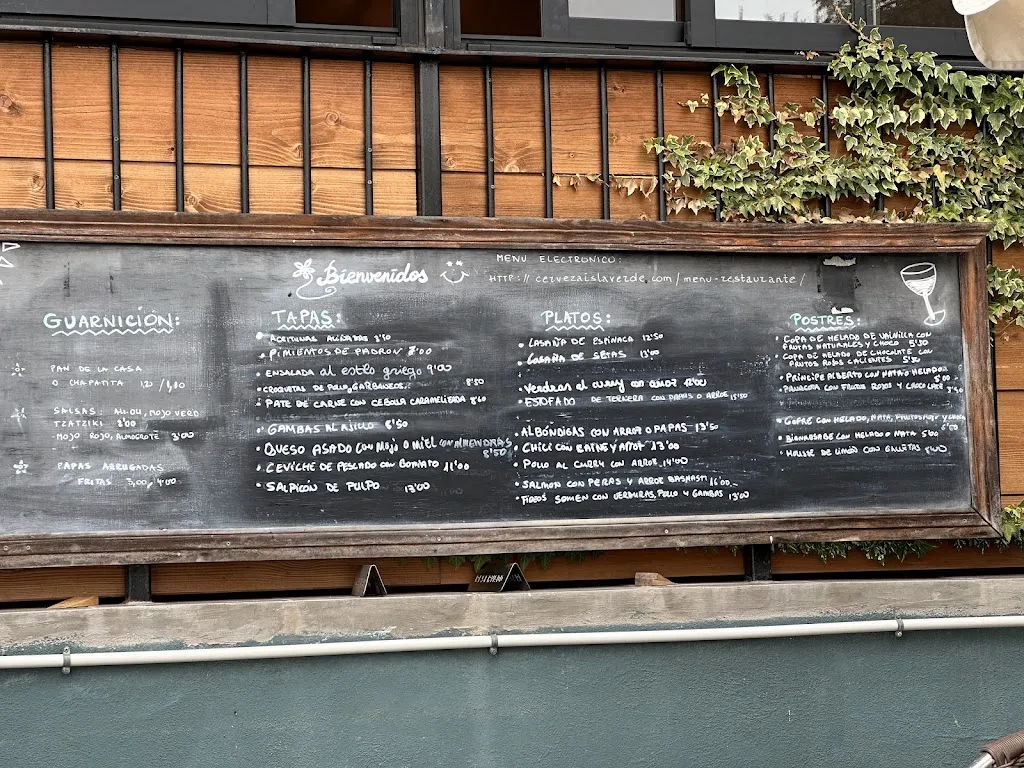 Bienvenidos
MENU ELECTRONICO:
HTTP://cervezaislaverde.com/menu-restaurante/
GUARNICIÓN:
PAN DE LA CASA
O CHAPATITA
SALSAS: ALI-OLI, MOJO VERD
TZATZIKI 3'00
MOJO ROJO, ALMOGROTE 3'00
PAPAS ARRUGADAS
FRITAS 3,00, 4'00
TAPAS:
ACEITUNAS ALIÑADAS 3'50
PIMIENTOS DE PADRON 7'00
ENSALADA al estilo griego 9'00
CROQUETAS DE POLLO, GARBANZOS: 8'50
PATE DE CARNE CON CEBOLLA CARAMELIZADA 8'60
GAMBAS AL AJILLO 8'50
QUESO ASADO CON MOJO O MIEL CON ALMENDRAS
8'50
CEVICHE DE PESCADO CON BONIATO 11'00
SALPICÓN DE PULPO 13'00
PLATOS:
LASAÑA DE ESPINACA 12'50
LASAÑA DE SETAS 13'00
Verduras al curry con arroz
ESTOFADO DE TERNERA CON PAPAS O ARROZ 15'50
ALBÓNDIGAS CON ARROZ O PAPAS 13'50
CHILI CON CARNE Y ARROZ 13'00
POLLO AL CURRY CON ARROZ 14'00
SALMON CON PERAS Y ARROZ BASMATI 16'00
FIDEOS SOMEN CON VERDURAS, POLLO Y GAMBAS 13'00
POSTRES:
COPA DE HELADO DE VAINILLA CON
FRUTAS NATURALES Y CHOCO 5'50
COPA DE HELADO DE CHOCOLATE CON
FRUTOS ROJOS CALIENTES 5'50
PRINCIPE ALBERTO CON NATA O HELADO
PANACOTA CON FRUTOS ROJOS Y CHOCOLATE
GOFRE CON HELADO, NATA, FRUTOS ROJO Y
BIENMESABE CON HELADO O NATA 5'00
MOUSSE DE LIMÓN CON GALLETAS